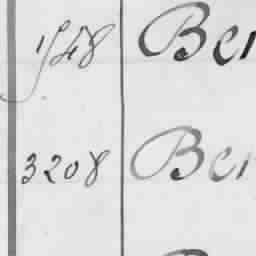 1548 Ber
3208 Ber